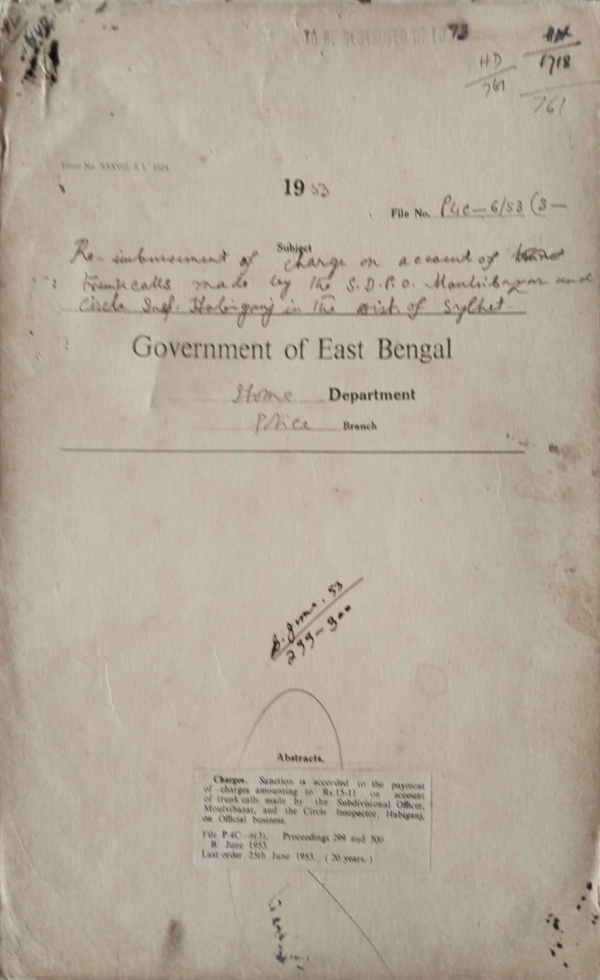 TO BE DESTROYED IN 19 73
HD
761
1718
761
Form No. XXXVIII
1953
File No. P4C-6/53 (3-
Subject
Re-imbursement of charge on account of
Trunk calls made by the S.D.P.O. Moulvibazar and
Circle Insp. Habiganj in the dist. of Sylhet.
Government of East Bengal
Home Department
Police Branch
B. June. 53
299-300
Abstracts.
Charges. Sanction is accorded to the payment
of charges amounting to Rs.15-11 on account
of trunk calls made by the Subdivisional Officer,
Moulvibazar, and the Circle Insepector, Habiganj,
on Official business.
File P.4C-6(3). Proceedings 299 and 300
B June 1953.
Last order 25th June 1953. (20 years.)